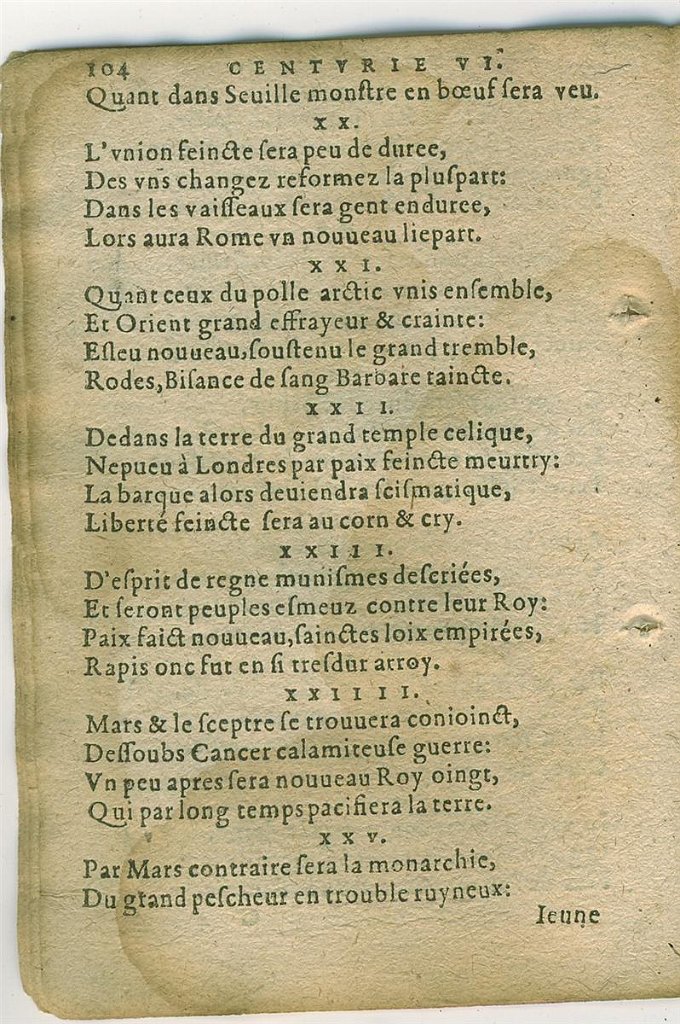 104 CENTVRIE VI.
Quant dans Seuille monſtre en bœuf ſera veu.
XX.
L'vnion feincte ſera peu de duree,
Des vns changez reformez la pluſpart:
Dans les vaiſſeaux ſera gent enduree,
Lors aura Rome vn nouueau liepart.
XXI.
Quant ceux du polle arctic vnis enſemble,
Et Orient grand effrayeur & crainte:
Eſleu nouueau, ſouſtenu le grand tremble,
Rodes, Biſance de ſang Barbare taincte.
XXII.
Dedans la terre du grand temple celique,
Nepueu à Londres par paix feincte meurtry:
La barque alors deuiendra ſciſmatique,
Liberté feincte ſera au corn & cry.
XXIII.
D'eſprit de regne muniſmes deſcriées,
Et ſeront peuples eſmeuz contre leur Roy:
Paix faict nouueau, ſainctes loix empirées,
Rapis onc fut en ſi treſdur arroy.
XXIIII.
Mars & le ſceptre ſe trouuera conioinct,
Deſſoubs Cancer calamiteuſe guerre:
Vn peu apres ſera nouueau Roy oingt,
Qui par long temps pacifiera la terre.
XXV.
Par Mars contraire ſera la monarchie,
Du grand peſcheur en trouble ruyneux:
Ieune